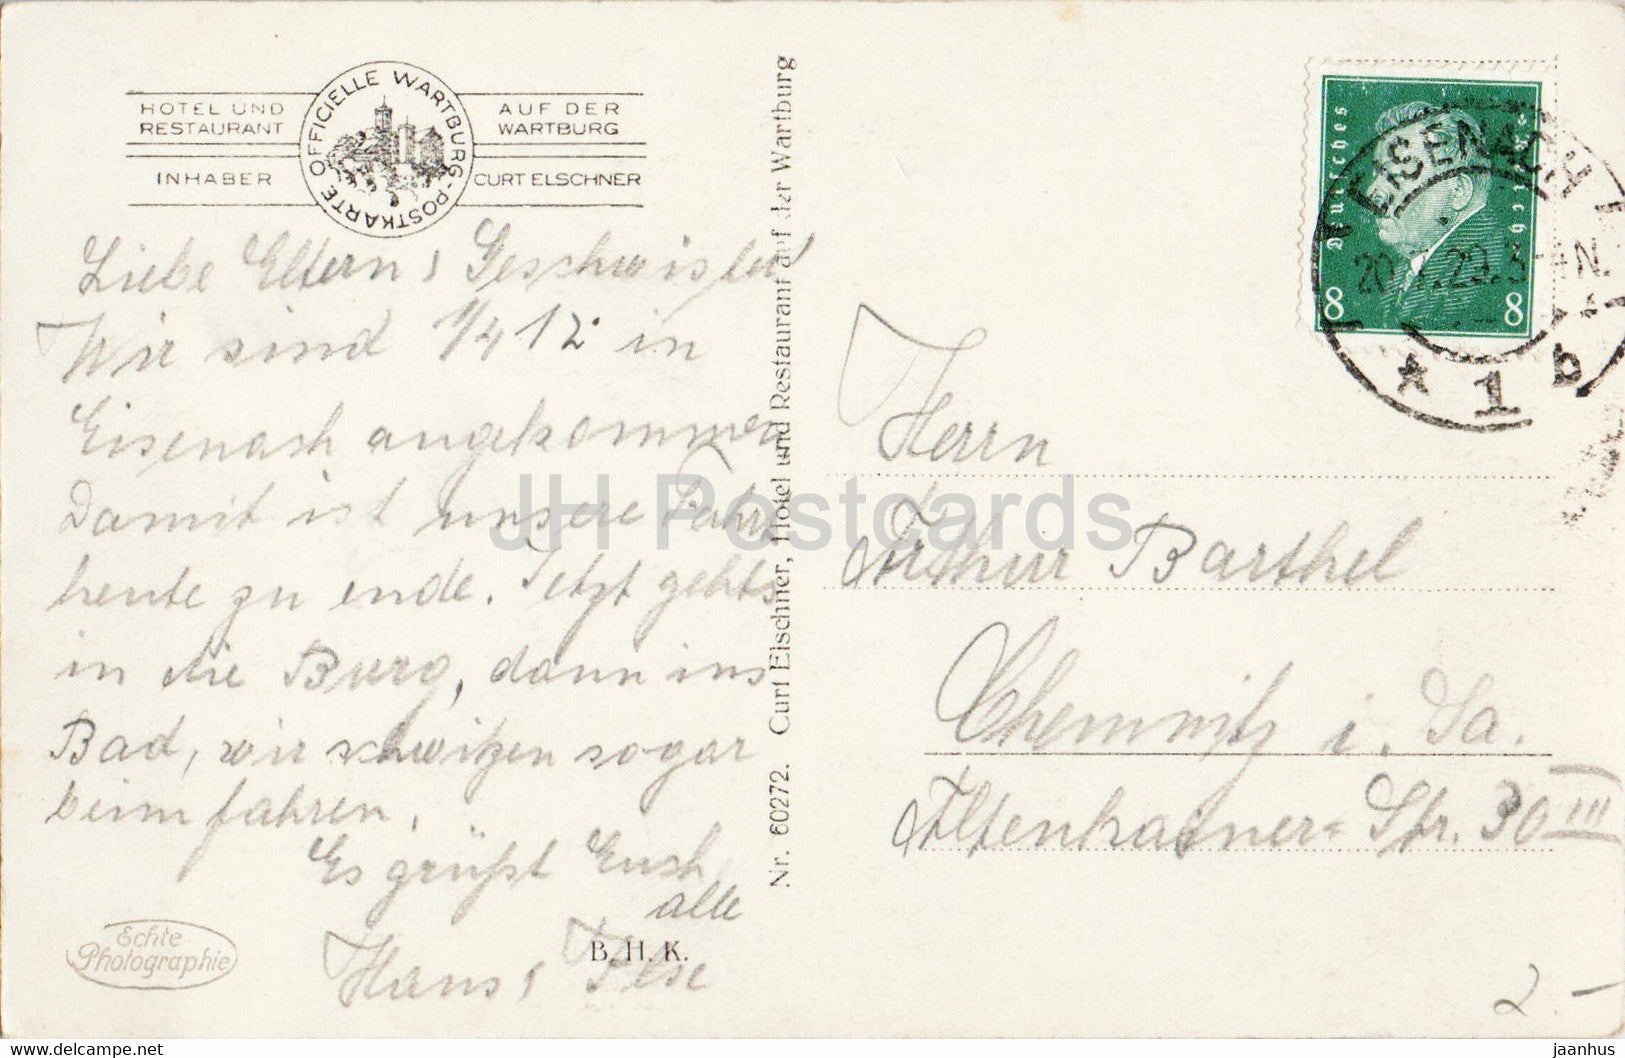 HOTEL UND
RESTAURANT
INHABER
OFFICIELLE WARTBURG-POSTKARTE
AUF DER
WARTBURG
CURT ELSCHNER
Liebe Eltern, Geschwister!
Wir sind 1/4 12 in
Eisenach angekommen
Damit ist unsere Fahrt
heute zu ende. Jetzt gehts
in die Burg, dann ins
Bad, wir schwitzen sogar
beim fahren.
Es grüßt Euch
alle
Hans,
Echte
Photographie
B. H. K.
Nr. 60272. Curt Elschner, Hotel und Restaurant auf der Wartburg
Deutsches Reich
8 8
EISENACH
1 b
Herrn
Arthur Barthel
Chemnitz i. Sa.
Str. 30 III
2.-
JH Postcards
delcampe.net
jaanhus